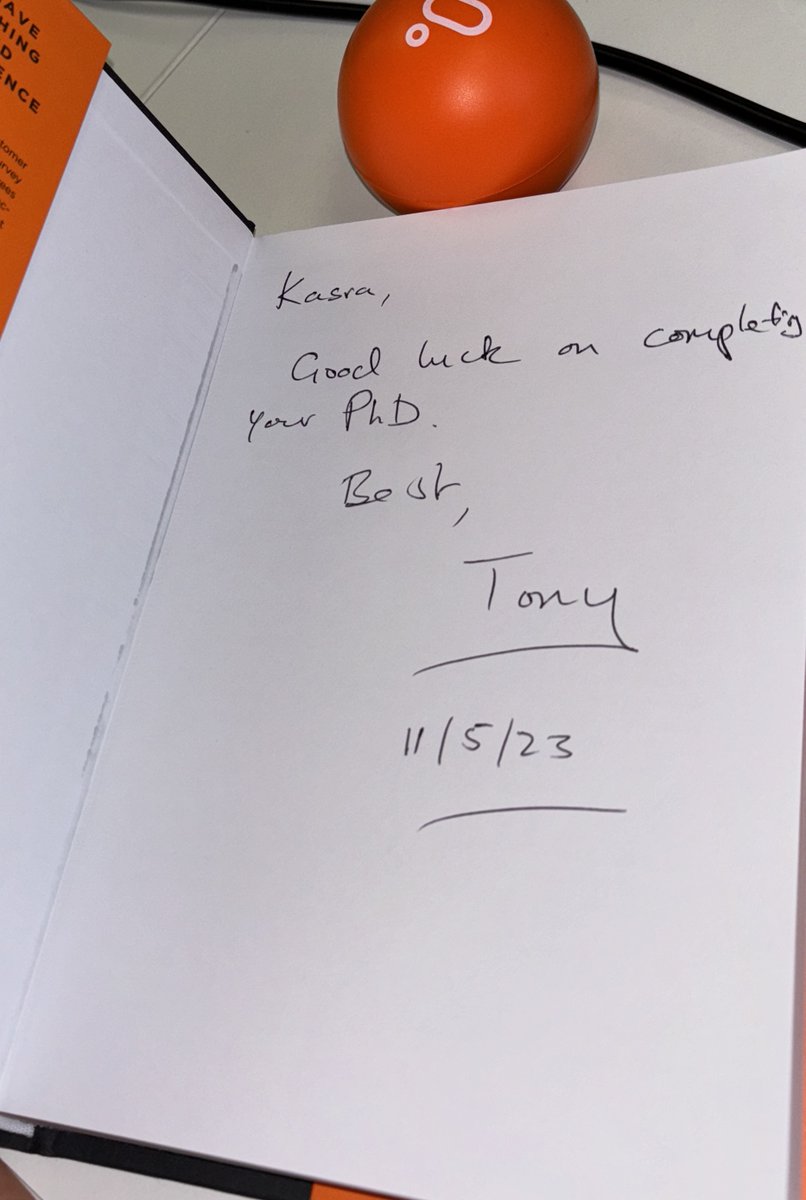 AVE
HING
D
ENCE
tomer
rvey
ees
c-
t
Kasra,
Good luck on completing
your PhD.
Best,
Tony
11/5/23